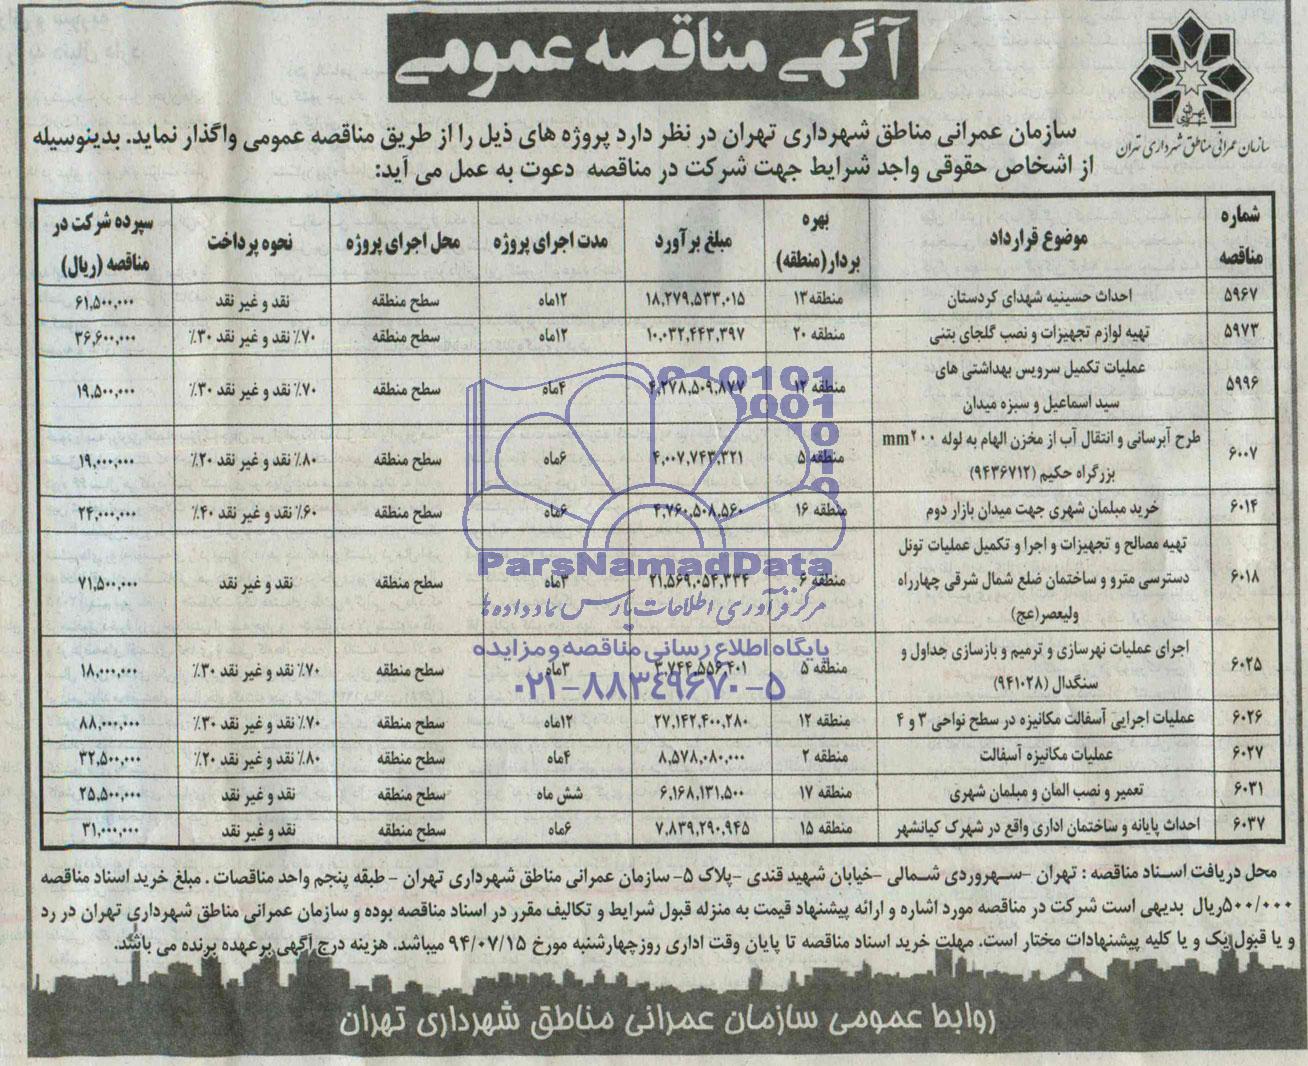 آگهی مناقصه عمومی
سازمان عمرانی مناطق شهرداری تهران
سازمان عمرانی مناطق شهرداری تهران در نظر دارد پروژه های ذیل را از طریق مناقصه عمومی واگذار نماید. بدینوسیله
از اشخاص حقوقی واجد شرایط جهت شرکت در مناقصه دعوت به عمل می آید:
شماره مناقصه | موضوع قرارداد | بهره بردار(منطقه) | مبلغ برآورد | مدت اجرای پروژه | محل اجرای پروژه | نحوه پرداخت | سپرده شرکت در مناقصه (ریال)
۵۹۶۷ | احداث حسینیه شهدای کردستان | منطقه۱۳ | ۱۸,۲۷۹,۵۳۳,۰۱۵ | ۱۲ماه | سطح منطقه | نقد و غیر نقد | ۶۱,۵۰۰,۰۰۰
۵۹۷۳ | تهیه لوازم تجهیزات و نصب گلجای بتنی | منطقه ۲۰ | ۱۰,۰۳۲,۴۴۳,۳۹۷ | ۱۲ماه | سطح منطقه | ۷۰٪ نقد و غیر نقد ۳۰٪ | ۳۶,۶۰۰,۰۰۰
۵۹۹۶ | عملیات تکمیل سرویس بهداشتی های
سید اسماعیل و سبزه میدان | منطقه ۱۲ | ۴,۲۷۸,۵۰۹,۸۷۷ | ۴ماه | سطح منطقه | ۷۰٪ نقد و غیر نقد ۳۰٪ | ۱۹,۵۰۰,۰۰۰
۶۰۰۷ | طرح آبرسانی و انتقال آب از مخزن الهام به لوله ۲۰۰ mm
بزرگراه حکیم (۹۴۳۶۷۱۲) | منطقه ۵ | ۴,۰۰۷,۷۴۳,۳۲۱ | ۶ماه | سطح منطقه | ۸۰٪ نقد و غیر نقد ۲۰٪ | ۱۹,۰۰۰,۰۰۰
۶۰۱۴ | خرید مبلمان شهری جهت میدان بازار دوم | منطقه ۱۶ | ۴,۷۶۰,۵۰۸,۵۶۰ | ۶ماه | سطح منطقه | ۶۰٪ نقد و غیر نقد ۴۰٪ | ۲۴,۰۰۰,۰۰۰
۶۰۱۸ | تهیه مصالح و تجهیزات و اجرا و تکمیل عملیات تونل
دسترسی مترو و ساختمان ضلع شمال شرقی چهارراه
ولیعصر(عج) | منطقه ۶ | ۲۱,۵۶۹,۰۵۴,۳۳۴ | ۳ماه | سطح منطقه | نقد و غیر نقد | ۷۱,۵۰۰,۰۰۰
۶۰۲۵ | اجرای عملیات نهرسازی و ترمیم و بازسازی جداول و
سنگدال (۹۴۱۰۲۸) | منطقه ۵ | ۳,۷۴۴,۵۵۶,۴۰۱ | ۳ماه | سطح منطقه | ۷۰٪ نقد و غیر نقد ۳۰٪ | ۱۸,۰۰۰,۰۰۰
۶۰۲۶ | عملیات اجرایی آسفالت مکانیزه در سطح نواحی ۳ و ۴ | منطقه ۱۲ | ۲۷,۱۴۲,۴۰۰,۲۸۰ | ۱۲ماه | سطح منطقه | ۷۰٪ نقد و غیر نقد ۳۰٪ | ۸۸,۰۰۰,۰۰۰
۶۰۲۷ | عملیات مکانیزه آسفالت | منطقه ۲ | ۸,۵۷۸,۰۸۰,۰۰۰ | ۴ماه | سطح منطقه | ۸۰٪ نقد و غیر نقد ۲۰٪ | ۳۲,۵۰۰,۰۰۰
۶۰۳۱ | تعمیر و نصب المان و مبلمان شهری | منطقه ۱۷ | ۶,۱۶۸,۱۳۱,۵۰۰ | شش ماه | سطح منطقه | نقد و غیر نقد | ۲۵,۵۰۰,۰۰۰
۶۰۳۷ | احداث پایانه و ساختمان اداری واقع در شهرک کیانشهر | منطقه ۱۵ | ۷,۸۳۹,۲۹۰,۹۴۵ | ۶ماه | سطح منطقه | نقد و غیر نقد | ۳۱,۰۰۰,۰۰۰
ParsNamadData
مرکز فرآوری اطلاعات پارس نماد داده ها
پایگاه اطلاع رسانی مناقصه و مزایده
۰۲۱-۸۸۳۴۹۶۷۰-۵
محل دریافت اسناد مناقصه : تهران -سهروردی شمالی -خیابان شهید قندی -پلاک ۵- سازمان عمرانی مناطق شهرداری تهران - طبقه پنجم واحد مناقصات . مبلغ خرید اسناد مناقصه
۵۰۰/۰۰۰ریال بدیهی است شرکت در مناقصه مورد اشاره و ارائه پیشنهاد قیمت به منزله قبول شرایط و تکالیف مقرر در اسناد مناقصه بوده و سازمان عمرانی مناطق شهرداری تهران در رد
و یا قبول یک و یا کلیه پیشنهادات مختار است. مهلت خرید اسناد مناقصه تا پایان وقت اداری روزچهارشنبه مورخ ۹۴/۰۷/۱۵ میباشد. هزینه درج آگهی برعهده برنده می باشد.
روابط عمومی سازمان عمرانی مناطق شهرداری تهران